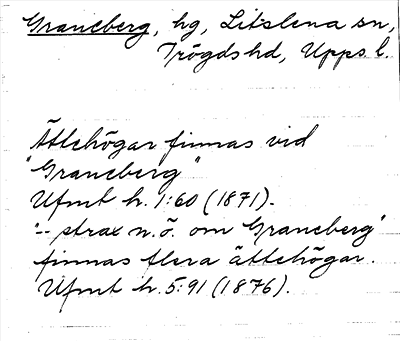 Graneberg, hg, Litslena sn,
Trögds hd, Upps. l.
Ättehögar finnas vid
"Graneberg"
Ufmt h. 1:60 (1871).
"-- strax n.ö. om Graneberg"
finnas flera ättehögar.
Ufmt h. 5:91 (1876).